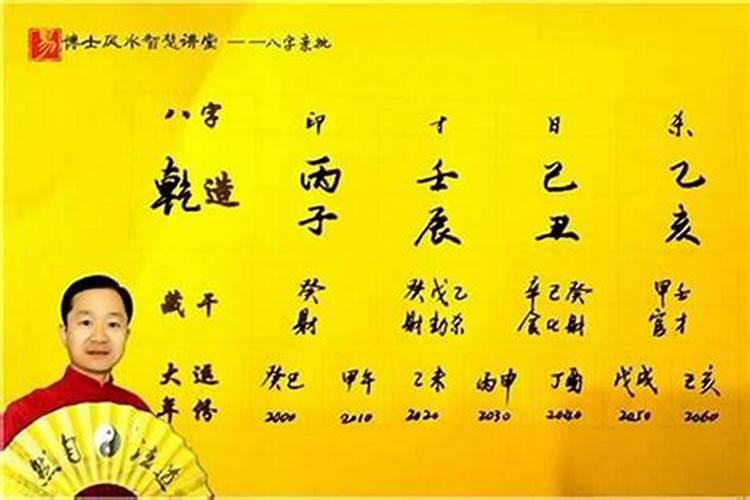 易 博士风水智慧讲堂 ——八字亲批
八字 印 才 日 杀
乾造 丙 壬 己 乙
子 辰 丑 亥
藏干 癸 癸戊乙 辛己癸 甲壬
财 财劫杀 食比财 官才
大运 癸巳 甲午 乙未 丙申 丁酉 戊戌 己亥
年份 2000 2010 2020 2030 2040 2050 2060
然自法道